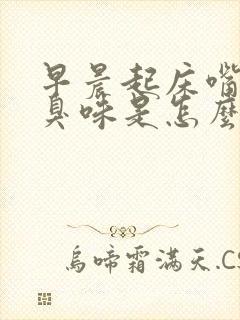 早晨起床嘴
臭味是怎麼
烏啼霜滿天.CS